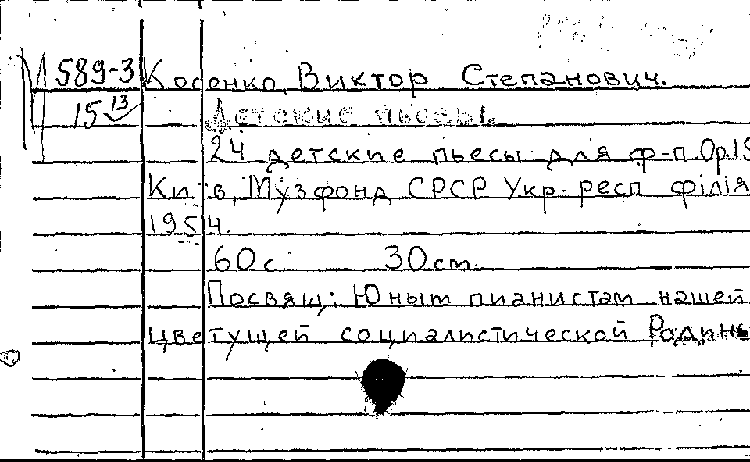 М 589-3 Косенко, Виктор Степанович.
15 13 Детские пьесы.
24 детские пьесы для ф-п. Op.15
Київ, Музфонд СРСР Укр. респ філія
1954.
60 с. 30 см.
Посвящ: Юным пианистам нашей
цветущей социалистической Родины